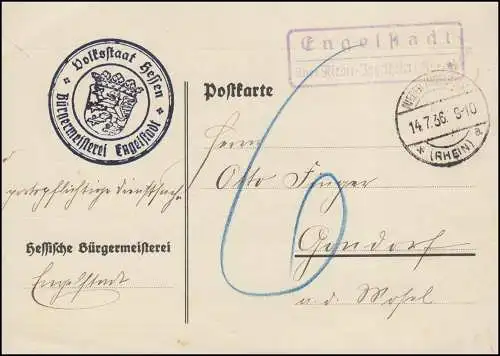 Volksstaat Hessen
Bürgermeisterei Engelstadt
Engelstadt
Postkarte
14.7.36. 9-10
(RHEIN) a
Herrn
Otto Finger
portopflichtige Dienstsache
Hessische Bürgermeisterei
Gondorf
Engelstadt
a. d. Mosel
6